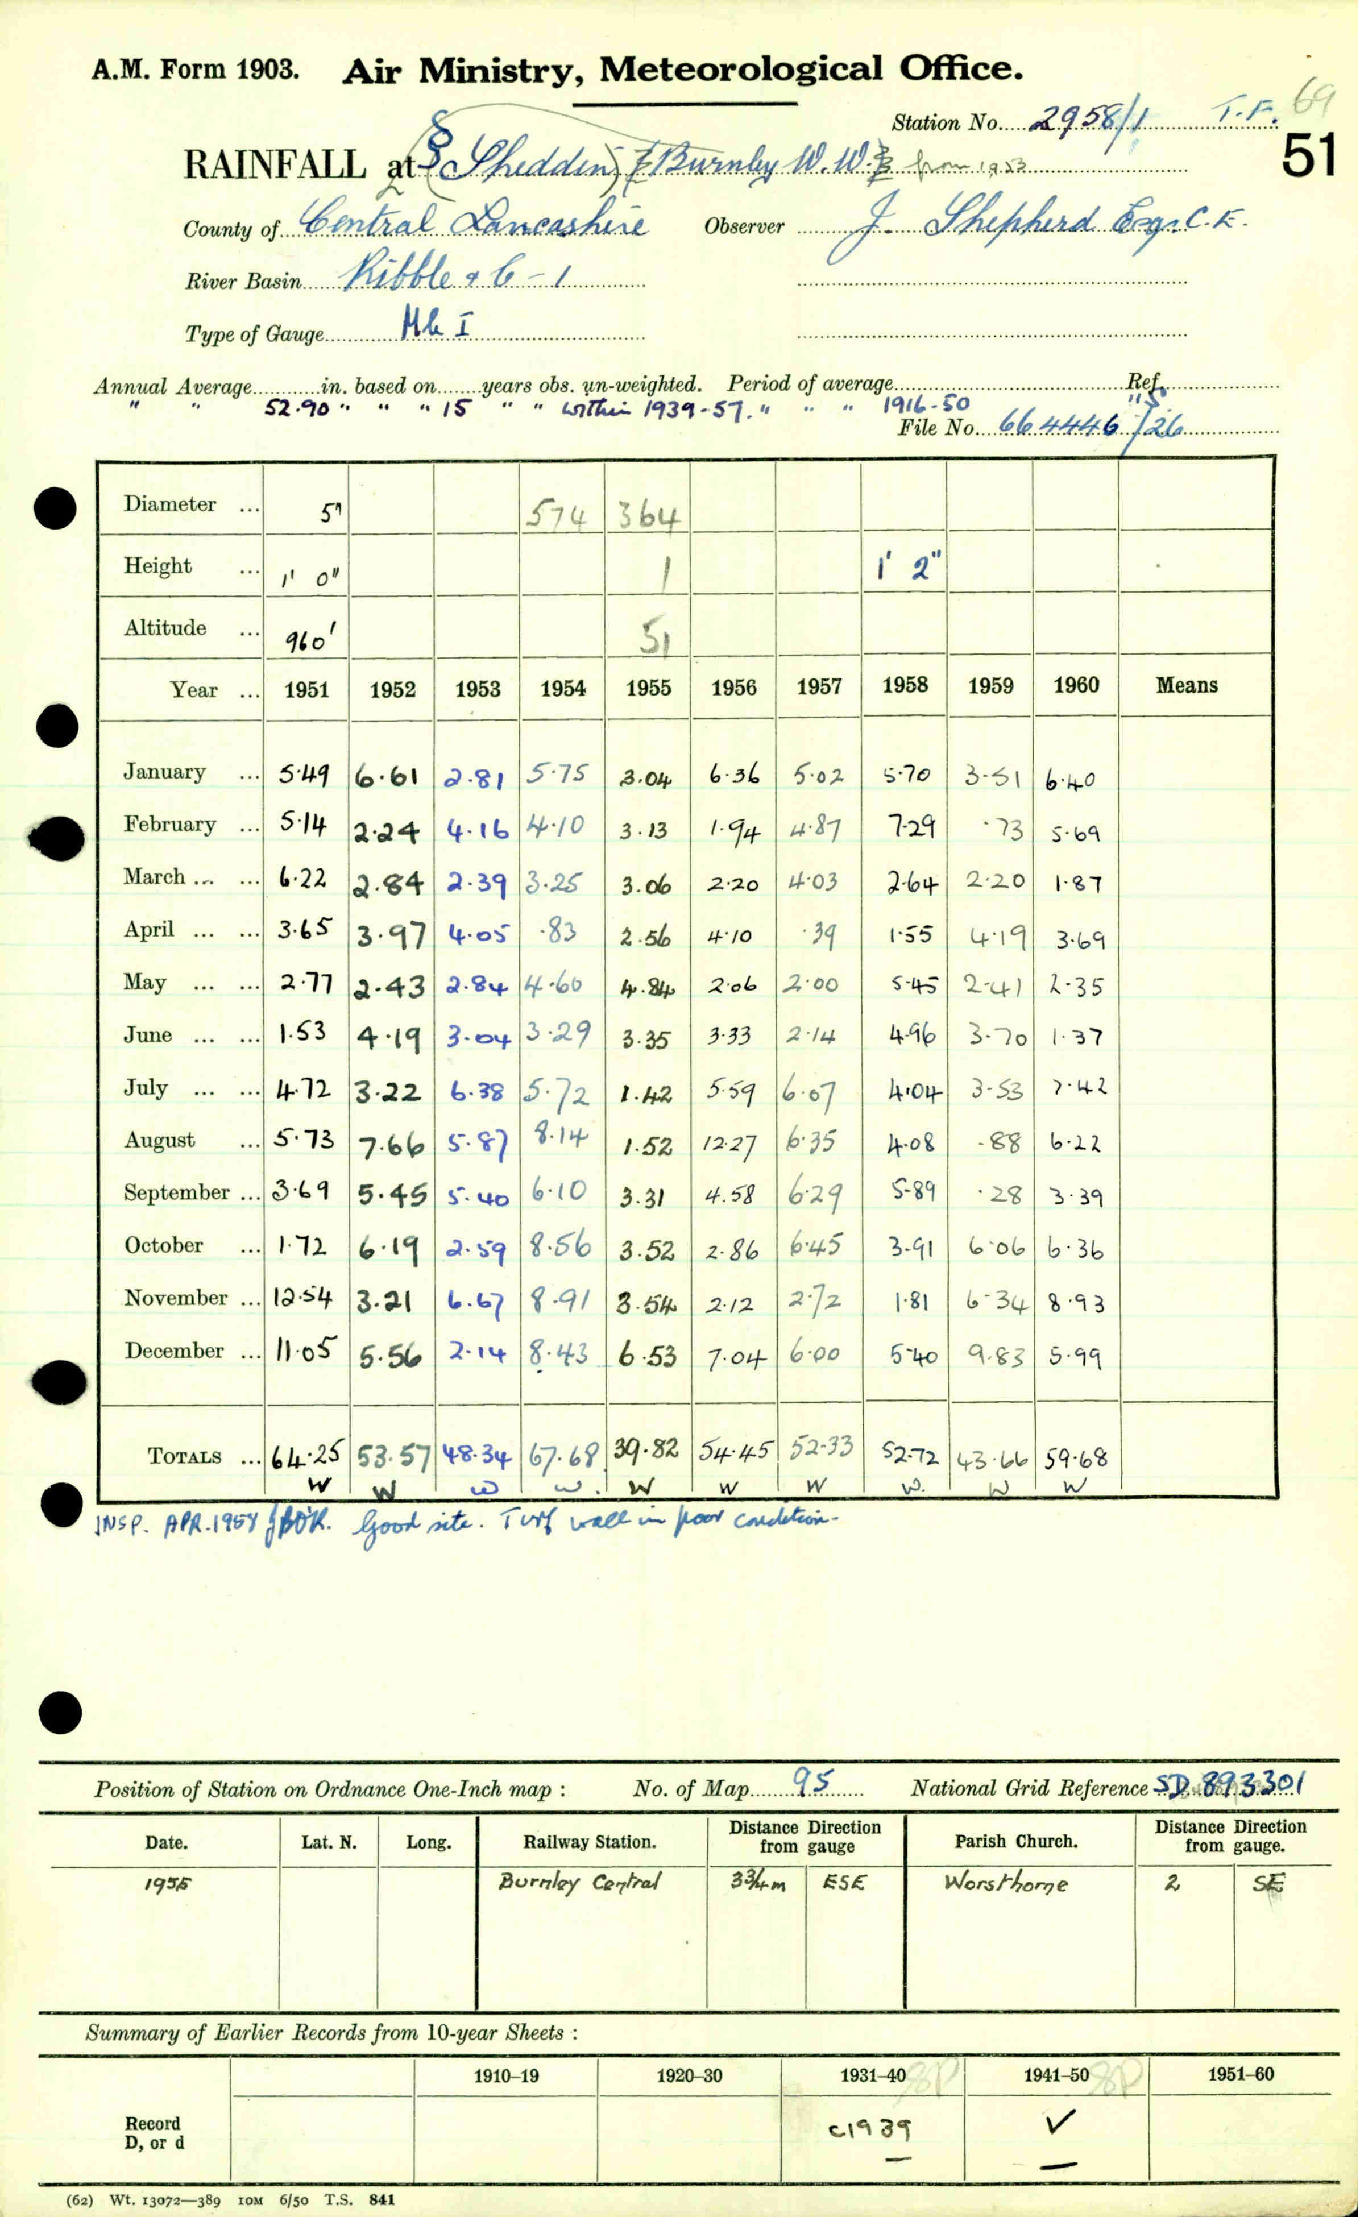 A.M. Form 1903. Air Ministry, Meteorological Office.
Station No. 2958/1 T.F. 69
51
RAINFALL at (Shedden) [Burnley W.W.] from 1953
County of Central Lancashire Observer J. Shepherd Esq. C.E.
River Basin Ribble & C-1
Type of Gauge Mk I
Annual Average in. based on years obs. un-weighted. Period of average Ref.
" " 52.90 " " " 15 " " within 1939-57. " " " 1916-50 "S.
File No. 664446/26
Diameter ... 5" 574 364
Height ... 1' 0" 1 1' 2"
Altitude ... 960' 51
Year ... 1951 1952 1953 1954 1955 1956 1957 1958 1959 1960 Means
January ... 5.49 6.61 2.81 5.75 3.04 6.36 5.02 5.70 3.51 6.40
February ... 5.14 2.24 4.16 4.10 3.13 1.94 4.87 7.29 .73 5.69
March ... ... 6.22 2.84 2.39 3.25 3.06 2.20 4.03 2.64 2.20 1.87
April ... ... 3.65 3.97 4.05 .83 2.56 4.10 .39 1.55 4.19 3.69
May ... ... 2.77 2.43 2.84 4.60 4.84 2.06 2.00 5.45 2.41 2.35
June ... ... 1.53 4.19 3.04 3.29 3.35 3.33 2.14 4.96 3.70 1.37
July ... ... 4.72 3.22 6.38 5.72 1.42 5.59 6.07 4.04 3.53 7.42
August ... 5.73 7.66 5.87 8.14 1.52 12.27 6.35 4.08 .88 6.22
September ... 3.69 5.45 5.40 6.10 3.31 4.58 6.29 5.89 .28 3.39
October ... 1.72 6.19 2.59 8.56 3.52 2.86 6.45 3.91 6.06 6.36
November ... 12.54 3.21 6.67 8.91 3.54 2.12 2.72 1.81 6.34 8.93
December ... 11.05 5.56 2.14 8.43 6.53 7.04 6.00 5.40 9.83 5.99
TOTALS ... 64.25 53.57 48.34 67.68 39.82 54.45 52.33 52.72 43.66 59.68
W W W W. W W W W. W W
INSP. APR. 1958 Good site. Turf wall in poor condition.
Position of Station on Ordnance One-Inch map : No. of Map 95 National Grid Reference SD 893301
Date. Lat. N. Long. Railway Station. Distance from Direction gauge Parish Church. Distance from Direction gauge.
1955 Burnley Central 3¾m ESE Worsthorne 2 SE
Summary of Earlier Records from 10-year Sheets :
1910–19 1920–30 1931–40 8P 1941–50 8P 1951–60
Record
D, or d
c1939 ✓
— —
(62) Wt. 13072—389 10M 6/50 T.S. 841